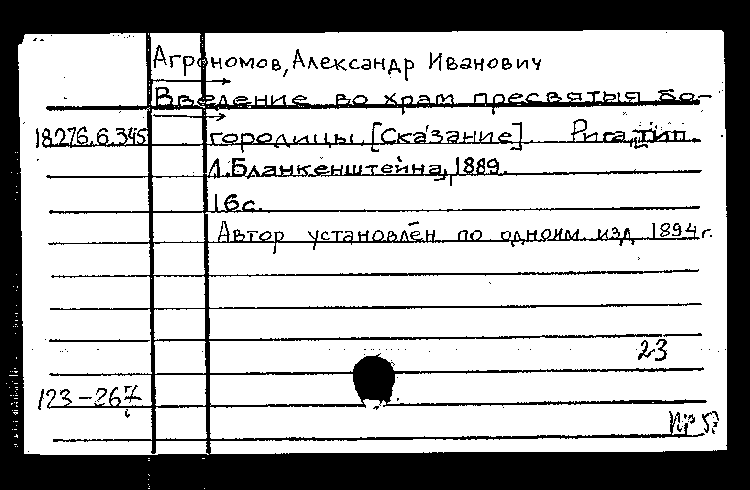 Агрономов, Александр Иванович
Введение во храм пресвятыя бо-
18.276.6.345 городицы. [Сказание]. Рига, тип.
Л. Бланкенштейна, 1889.
16 с.
Автор установлен по одноим. изд. 1894 г.
23
123-267